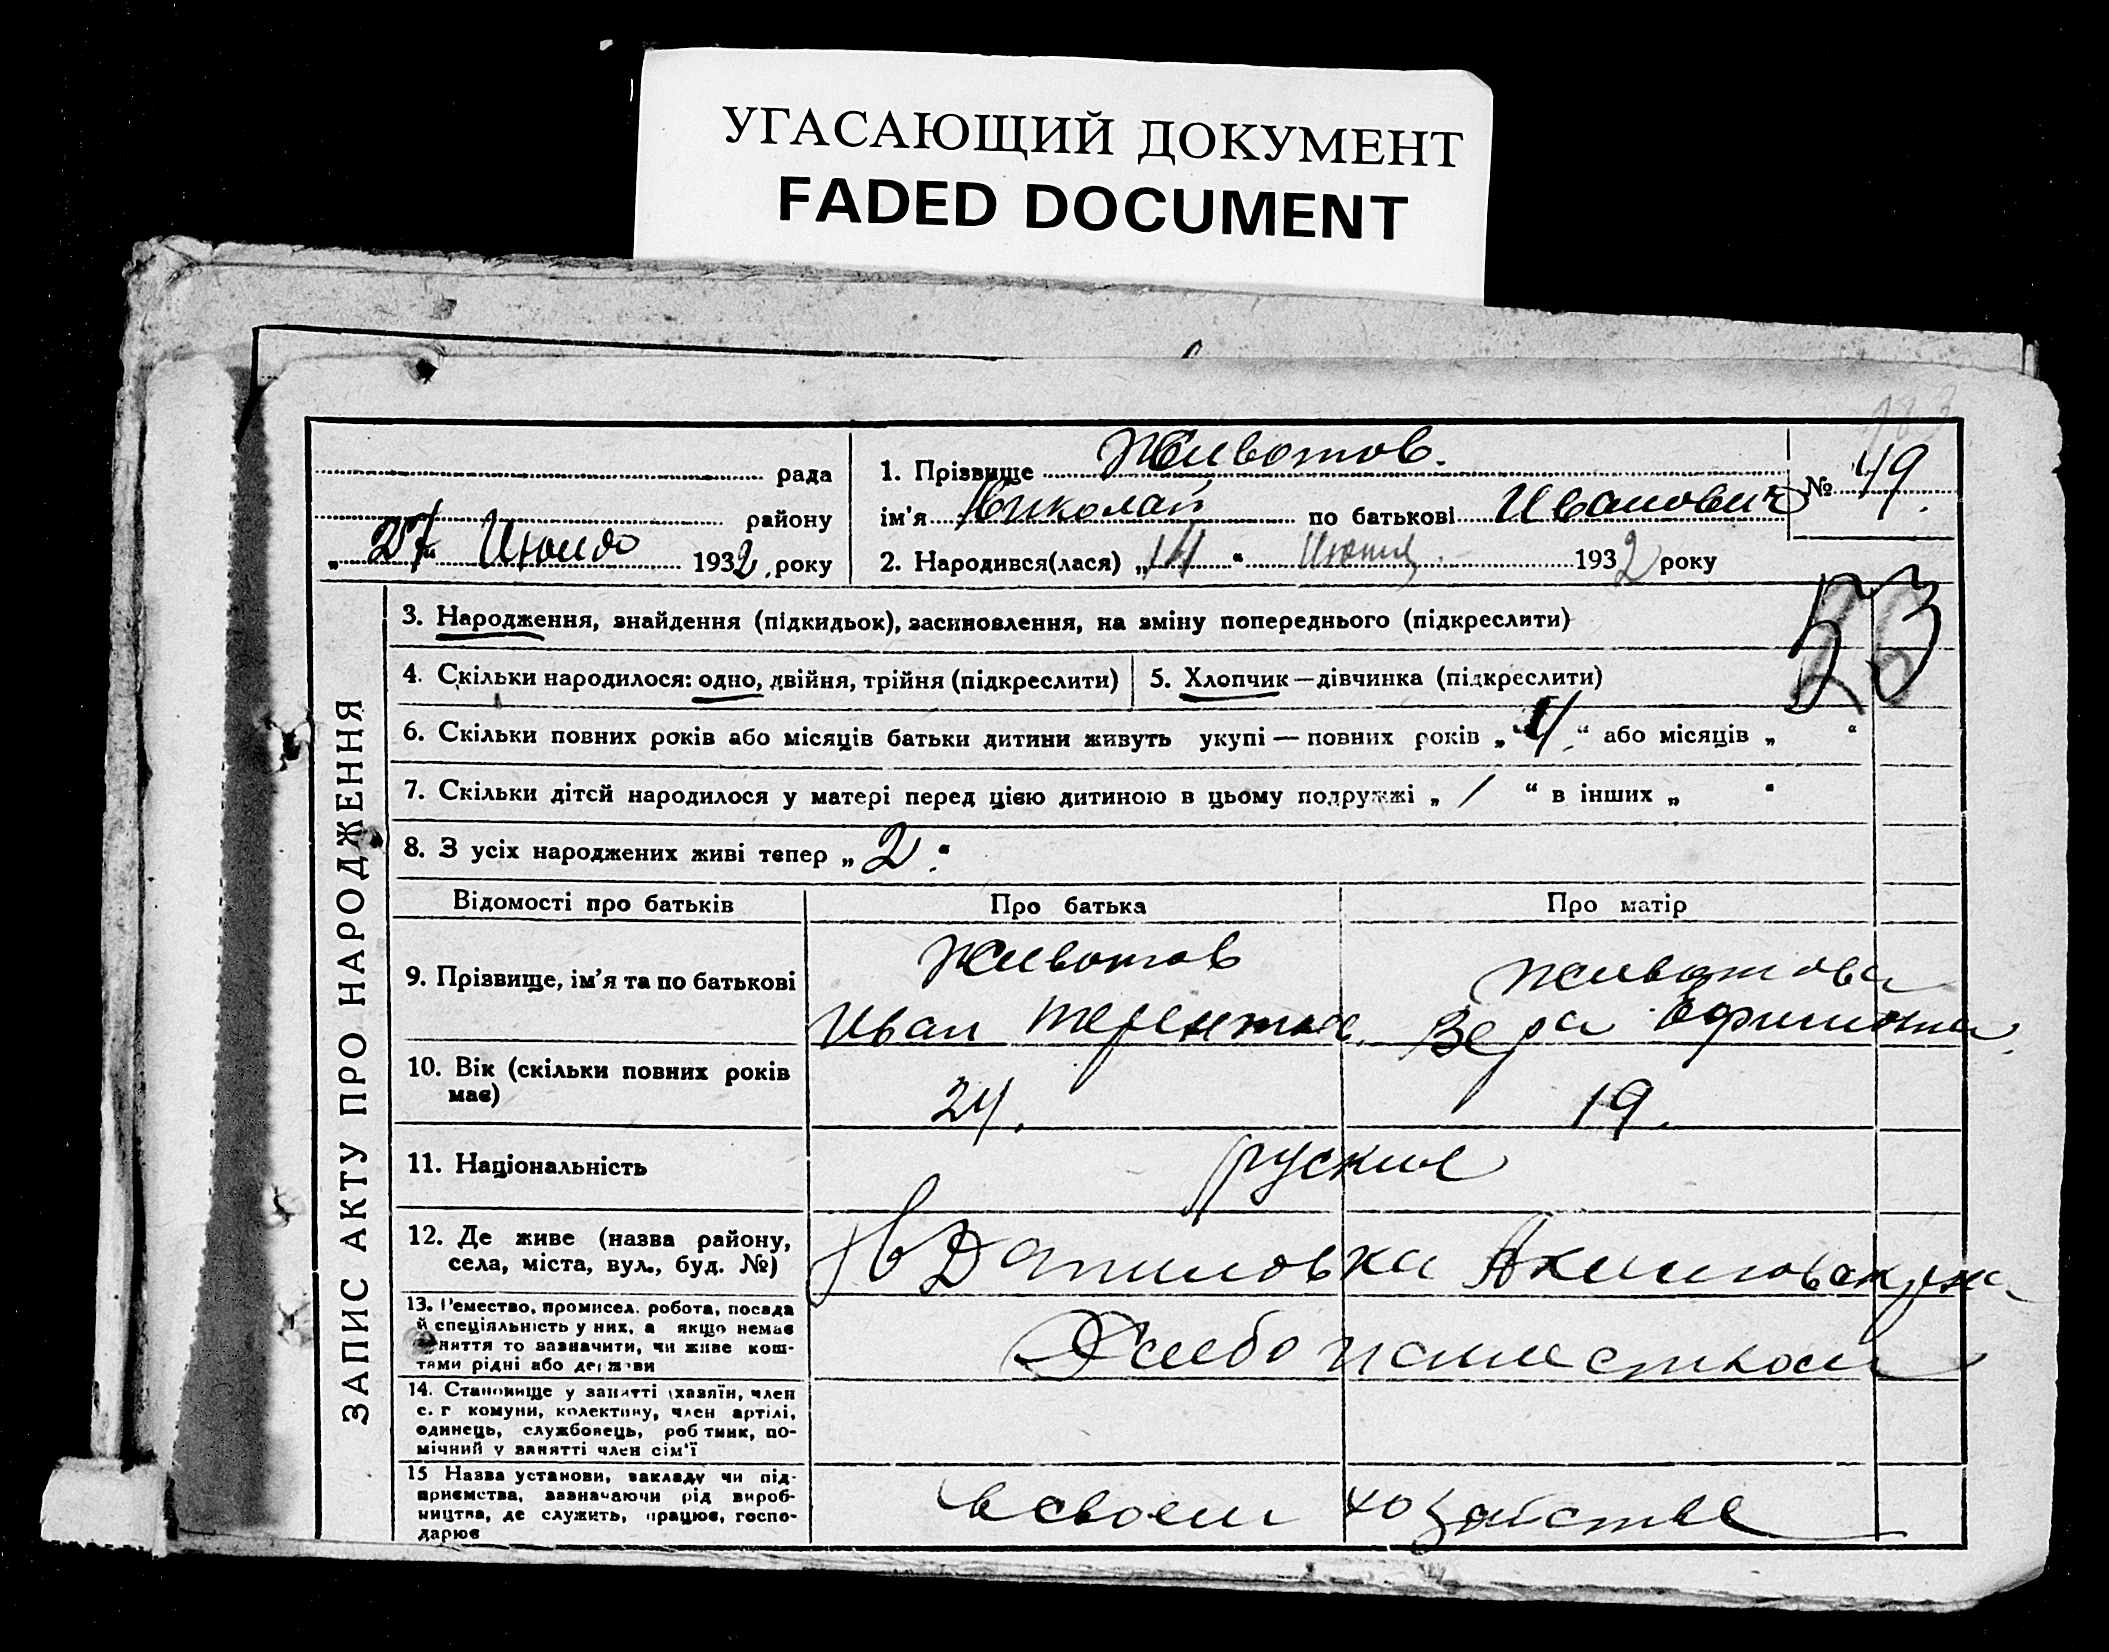 УГАСАЮЩИЙ ДОКУМЕНТ
FADED DOCUMENT
рада
району
„27“ Июля 1932 року
1. Прізвище Животов.
ім'я Николай по батькові Иванович
2. Народився(лася) „14“ 1932 року
№ 49.
53
ЗАПИС АКТУ ПРО НАРОДЖЕННЯ
3. Народження, знайдення (підкидьок), засиновлення, на зміну попереднього (підкреслити)
4. Скільки народилося: одно, двійня, трійня (підкреслити)
5. Хлопчик—дівчинка (підкреслити)
6. Скільки повних років або місяців батьки дитини живуть укупі — повних років „4“ або місяців „ “
7. Скільки дітей народилося у матері перед цією дитиною в цьому подружжі „1“ в інших „ “
8. З усіх народжених живі тепер „2“
Відомості про батьків
Про батька
Про матір
9. Прізвище, ім'я та по батькові
Животов
Иван
Животова
Вера
10. Вік (скільки повних років має)
24.
19.
11. Національність
руские
12. Де живе (назва району, села, міста, вул., буд. №)
Даниловка
13. Ремество, промисел. робота, посада
й спеціяльність у них, а якщо немає
заняття то зазначити, чи живе кош-
тами рідні або держави
14. Становище у занятті (хазяїн, член
с. г комуни, колективу, член артілі,
одинець, службовець, робітник, по-
мічний у занятті член сім'ї
15 Назва установи, закладу чи під-
приємства, зазначаючи рід вироб-
ництва, де служить, працює, госпо-
дарює
в своем хозайстве